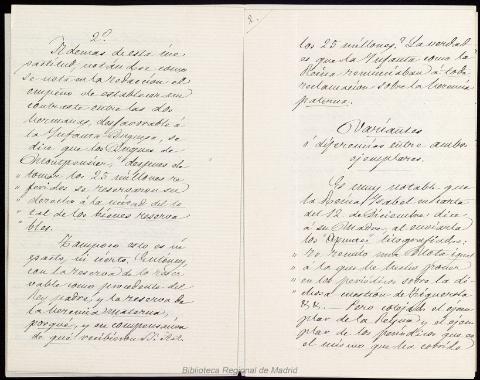 2º
Además de esta im-
parcialidad, notándose como
se nota en la redacción el
empeño de establecer un
contraste entre las dos
hermanas, desfavorable á
la Infanta Duquesa, se
dice que los Duques de
Montpensier, "despues de
" tomar los 25 millones re-
" feridos se reservaron su
" derecho á la mitad del to-
" tal de los bienes reserva-
bles.
Tampoco esto es ni
exacto, ni cierto. Entonces,
con la reserva de lo reser-
vable como procedente del
Rey padre, y la reserva de
la herencia materna,
porque, y en compensación
de qué recibieron S. A. R.
2.
los 25 millones? La verdad
es que la Infanta como la
Reina renunciaban á toda
reclamacion sobre la herencia
paterna.
Variantes
ó diferencias entre ambos
ejemplares.
Es muy notable que
la Reina Isabel en carta
del 12 de Diciembre dice
á su Cuñado, al enviarle
los "Apuntes" litografiados:
" Te remito una Nota igual
" á la que he hecho poner
" en los periódicos sobre la di-
" chosa cuestion de
&. &. — Pero cotejado el ejem-
plar de la Reina y el ejem-
plar de los periódicos que es
el mismo que ha corrido
Biblioteca Regional de Madrid